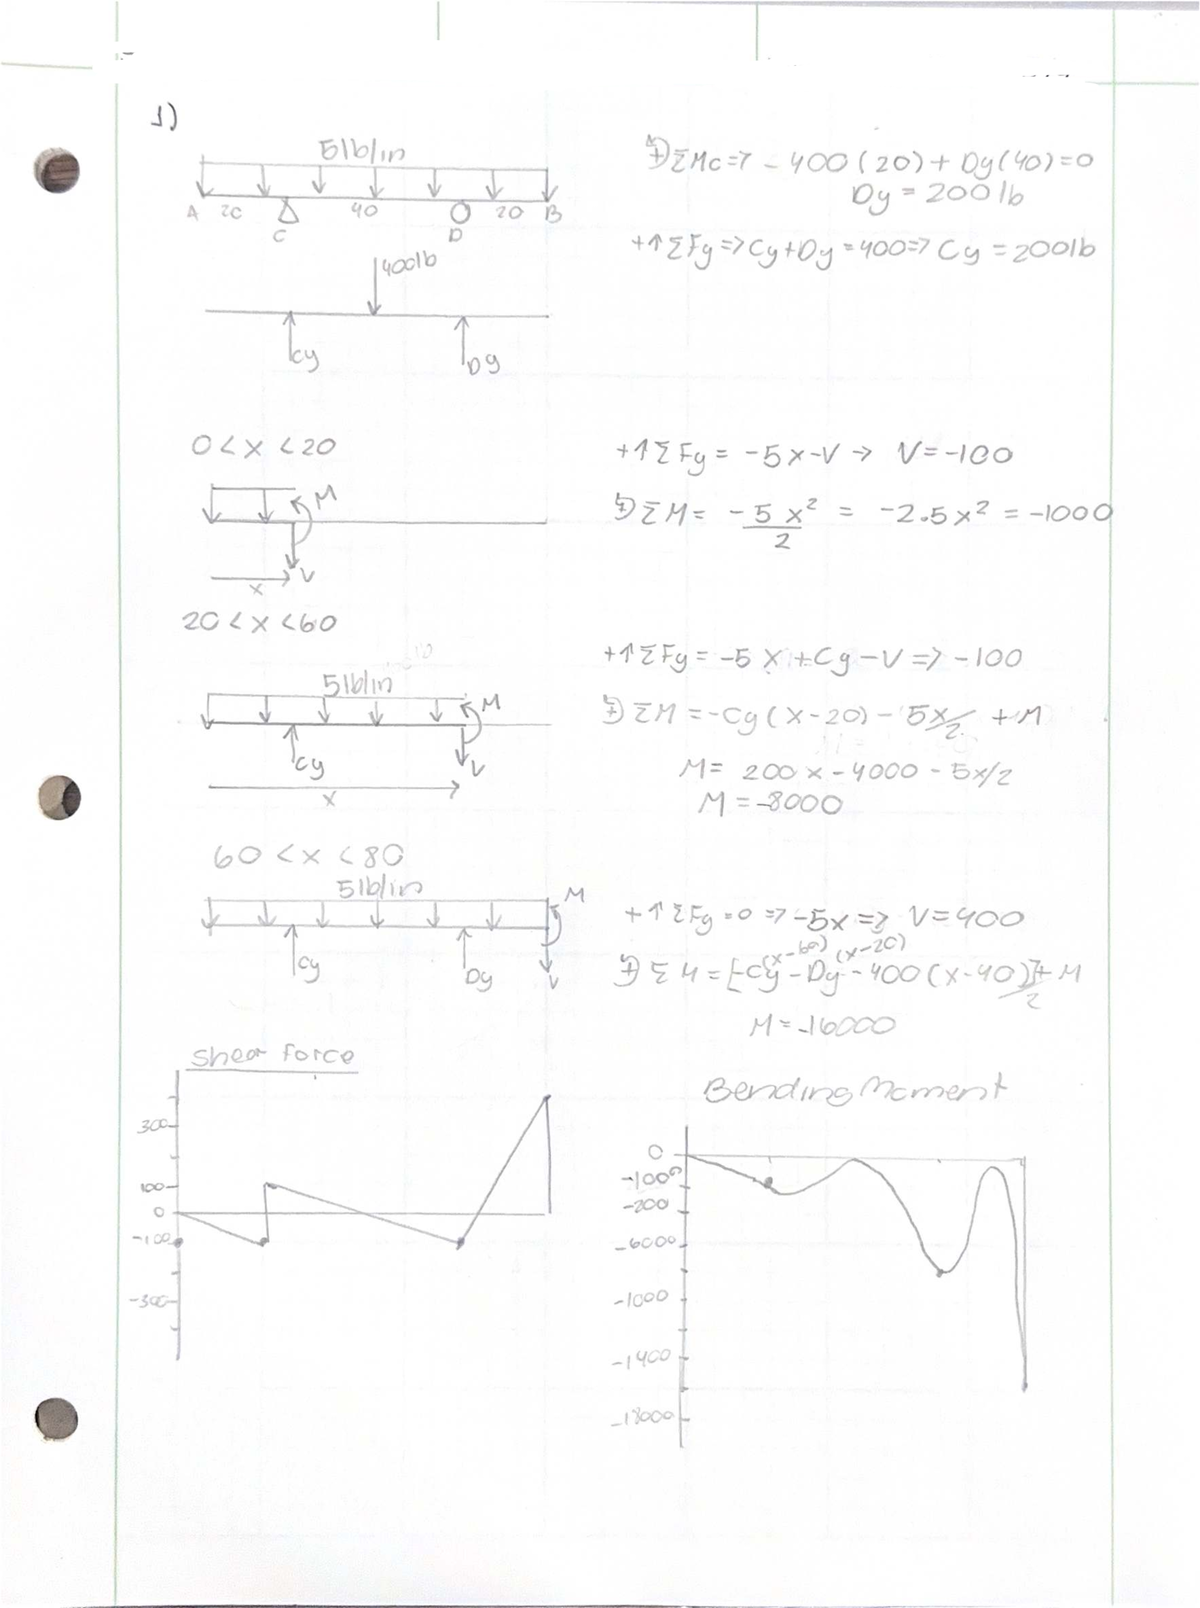 1)
5lb/in
A 20 C 40 D 20 B
400lb
Cy Dy
+ΣMc => - 400(20) + Dy(40)=0
Dy = 200 lb
+↑ΣFy => Cy+Dy = 400 => Cy = 200lb
0 < x < 20
M
V
x
+↑ΣFy = -5x-V → V = -100
+ΣM = -5x²/2 = -2.5x² = -1000
20 < x < 60
5lb/in
M
Cy
V
x
+↑ΣFy = -5x +Cy -V => -100
+ΣM = -Cy(x-20) - 5x/2 + M
M = 200x - 4000 - 5x/2
M = -8000
60 < x < 80
5lb/in
M
Cy Dy V
+↑ΣFy = 0 => -5x => V = 400
(x-60) (x-20)
+ΣM = [-Cy - Dy - 400(x-40)]/2 + M
M = -16000
Shear Force
300
100
0
-100
-300
Bending Moment
0
-1000
-200
-6000
-1000
-1400
-18000